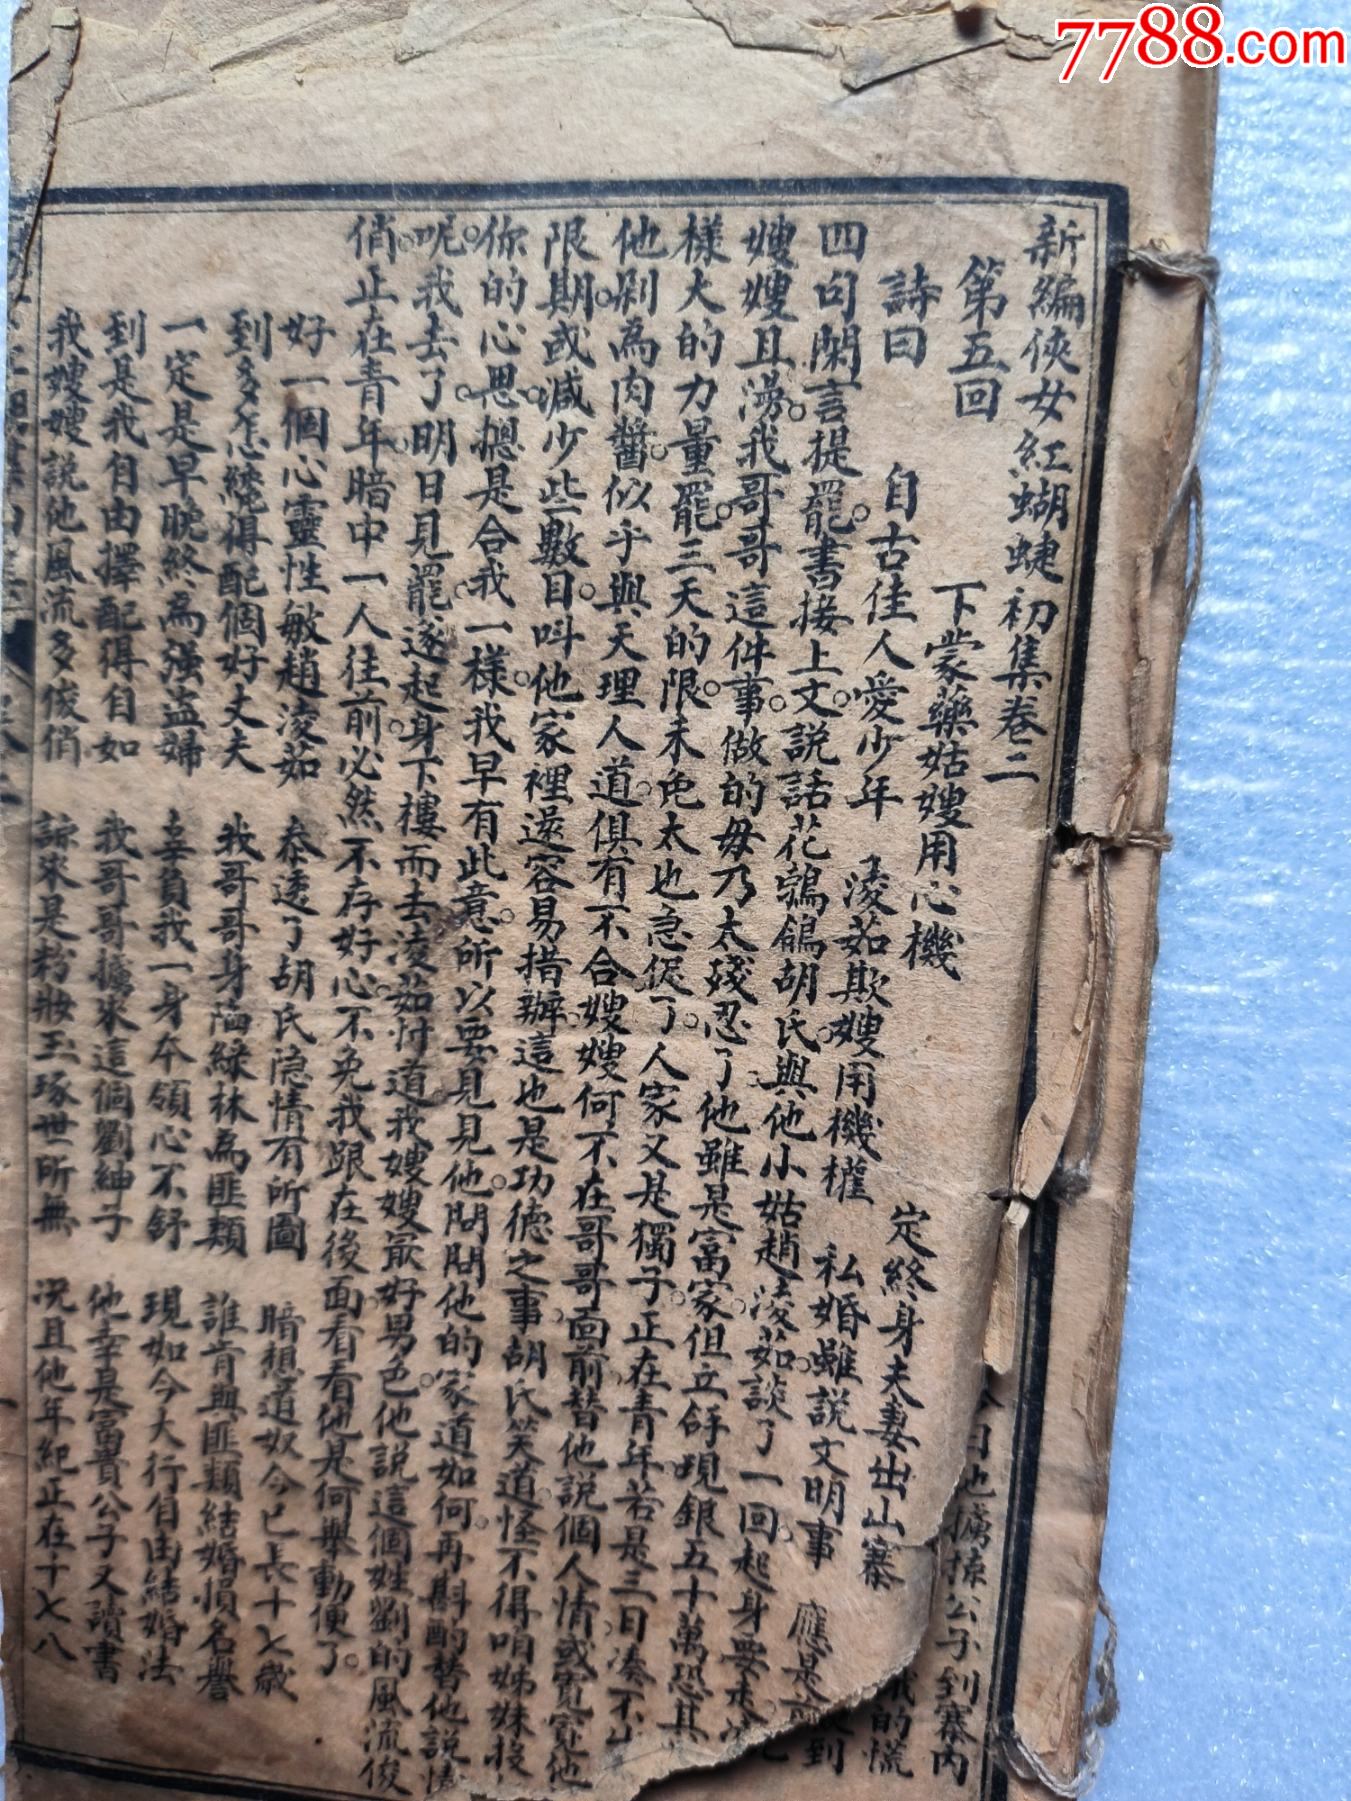 7788.com
新編俠女紅蝴蝶初集卷二
第五回 下蒙藥姑嫂用心機 定終身夫妻出山寨
詩曰 自古佳人愛少年 淩茹欺嫂用機權 私婚雖説文明事 應是
四句閑言提罷書接上文説話花鵓鴿胡氏與他小姑趙淩茹談了一回起身要走
嫂嫂且湯我哥哥這件事做的毋乃太殘忍了他雖是富家但立時現銀五十萬恐其
樣大的力量罷三天的限未免太也急促了人家又是獨子正在青年若是三日湊不出
他剁為肉醬似乎與天理人道俱有不合嫂嫂何不在哥哥面前替他説個人情或寬寬他
限期或減少些數目呌他家裡還容易措辦這也是功德之事胡氏笑道怪不得咱姊妹投
你的心思摠是合我一樣我早有此意所以要見見他問問他的家道如何再斟酌替他説情
呢我去了明日見罷遂起身下樓而去淩茹忖道我嫂嫂㝡好男色他説這個姓劉的風流俊
俏正在青年暗中一人往前必然不存好心不免我跟在後面看看他是何舉動便了
好一個心靈性敏趙淩茹 泰透了胡氏隐情有所圖 暗想道奴今已長十七歲
到多怎纔得配個好丈夫 我哥哥身陷緑林為匪類 誰肯與匪類結婚損名譽
一定是早晚終為强盗婦 辜負我一身本領心不舒 現如今大行自由結婚法
到是我自由擇配得自如 我哥哥擄來這個劉紳子 他幸是富貴公子又讀書
我嫂嫂説他風流多俊俏 諒來是粉妝玉琢世所無 况且他年紀正在十七八